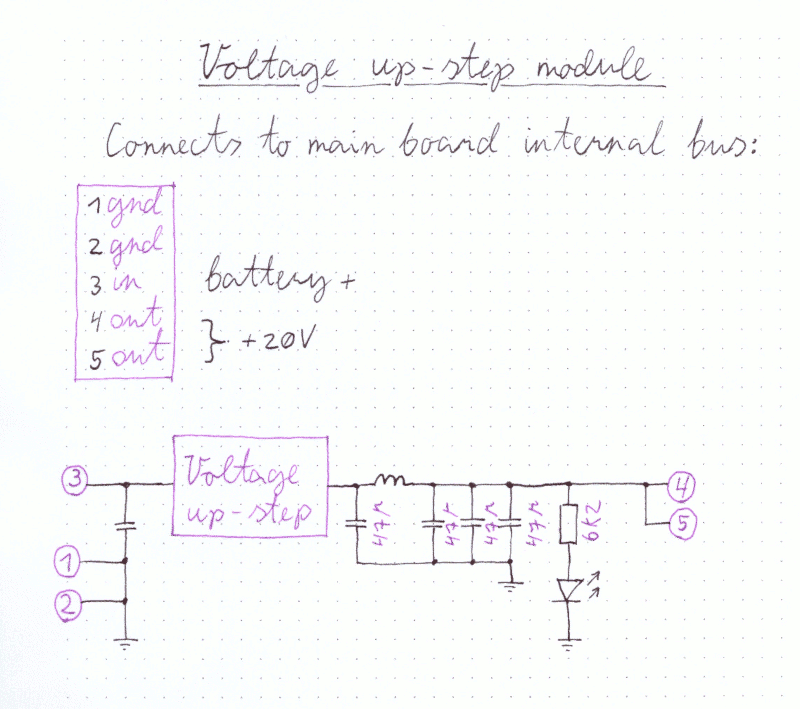 Voltage up-step module
Connects to main board internal bus:
1 gnd
2 gnd
3 in battery +
4 out
5 out } +20V
3 Voltage up-step 4
5
47µ 47µ 47µ 47µ 6k2
1
2